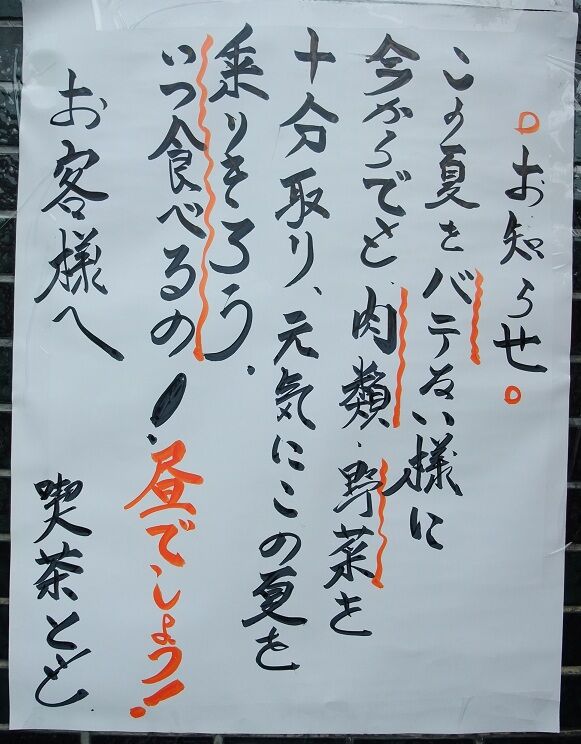 お知らせ
この夏をバテない様に
今からでも肉類・野菜を
十分取り、元気にこの夏を
乗りきろう。
いつ食べるの!昼でしょう!
お客様へ 喫茶とど